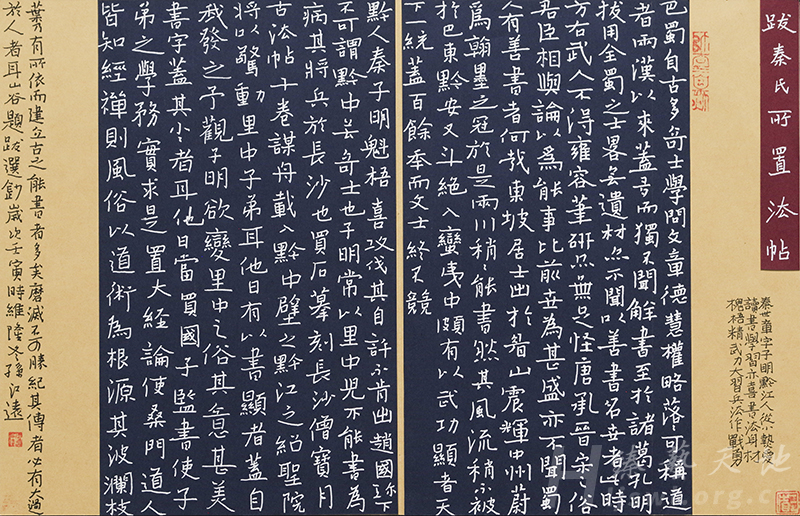 跋秦氏所置法帖
秦世章字子明黔江人從小熱愛
讀書學習亦喜書法身材
槐梧精武刀大習兵法作戰勇
巴蜀自古多奇士學問文章德慧權略落落可稱道
者兩漢以來蓋多而獨不聞解書至於諸葛孔明
拔用全蜀之士略無遺材亦不聞以善書名世者此時
方右武人不得雍容筆研亦無足怪唐承晉宋之俗
君臣相與論以爲能事比前世為甚盛亦不聞蜀
人有善書者何哉東坡居士出於眉山震輝中州蔚
爲翰墨之冠於是兩川稍稍能書然其風流稍不被
於巴東黔安又斗絕入蠻夷中頗有以武功顯者天
下一統蓋百餘年而文士終不競
黔人秦子明魁梧喜攻伐其自許不肯出趙國珍下
不可謂黔中無奇士也子明常以里中兒不能書為
病其將兵於長沙也買石摹刻長沙僧寶月
古法帖十卷謀舟載入黔中壁之黔江之紹聖院
將以驚動里中子弟耳他日有以書顯者蓋自
我發之予觀子明欲變里中之俗其意甚美
書字蓋其小者耳他日當買國子監書使子
弟之學務實求是置大經論使桑門道人
皆知經禪則風俗以道術為根源其波瀾枝
葉乃有所依而建立古之能書者多矣磨滅不可勝紀其傳者必有大過
於人者耳山谷題跋選鈔歲次壬寅時維隆冬孫江遠
藝天地